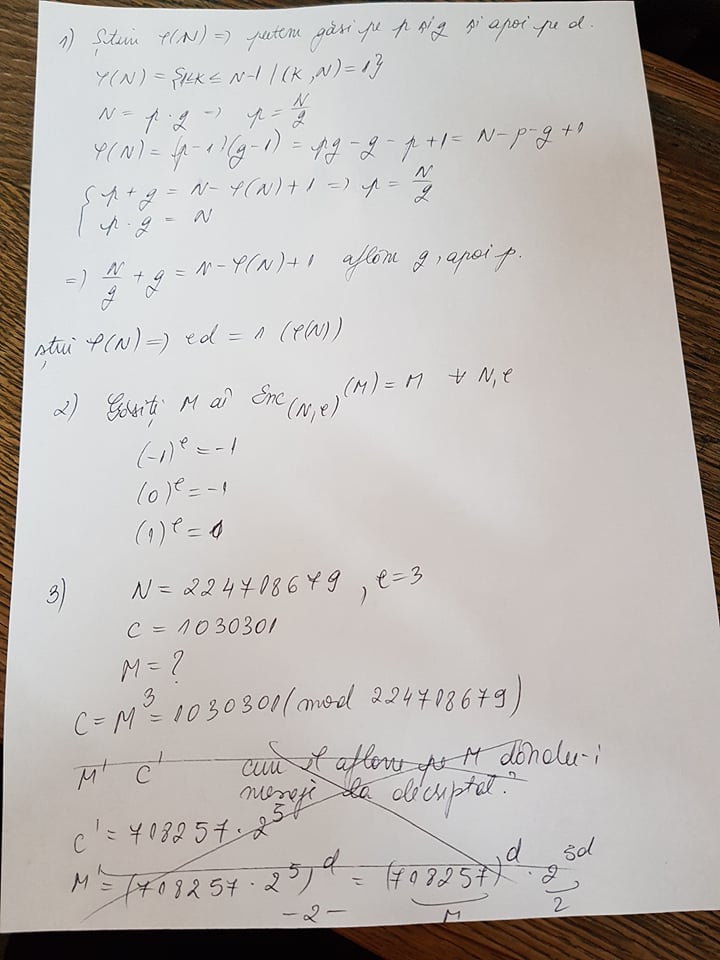 1) Știm φ(N) => putem găsi pe p și q și apoi pe d.
φ(N) = {1≤k ≤ N-1 / (k, N) = 1}
N = p · q => p = N/q
φ(N) = (p-1)(q-1) = pq - q - p + 1 = N - p - q + 1
{ p + q = N - φ(N) + 1 => p = N/q
p · q = N
=) N/q + q = N - φ(N) + 1 aflăm q, apoi p.
știu φ(N) => ed = 1 (φ(N))
2) Găsiți M aî Enc(N,e) (M) = M ∀ N, e
(-1)^e = -1
(0)^e = -1
(1)^e =
3) N = 224708679, e = 3
C = 1030301
M = ?
C = M^3 = 1030301 (mod 224708679)
M' C' cum îl aflăm pe M dându-i
mesaj la decriptat?
C' = 708257 · 2^5
M' = (708257 · 2^5)^d = (708257)^d · 2^5d
M 2
-2-